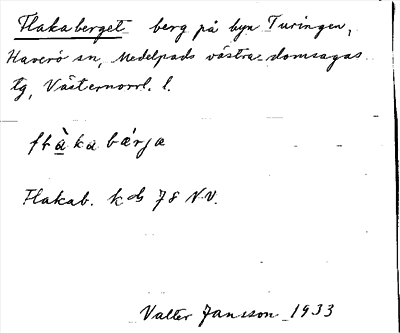 Flakaberget berg på byn Turingen,
Haverö sn, Medelpads västra domsagas
tg, Västernorrl. l.
flàka bárja
Flakab. kdb 78 N.V.
Valter Jansson 1933